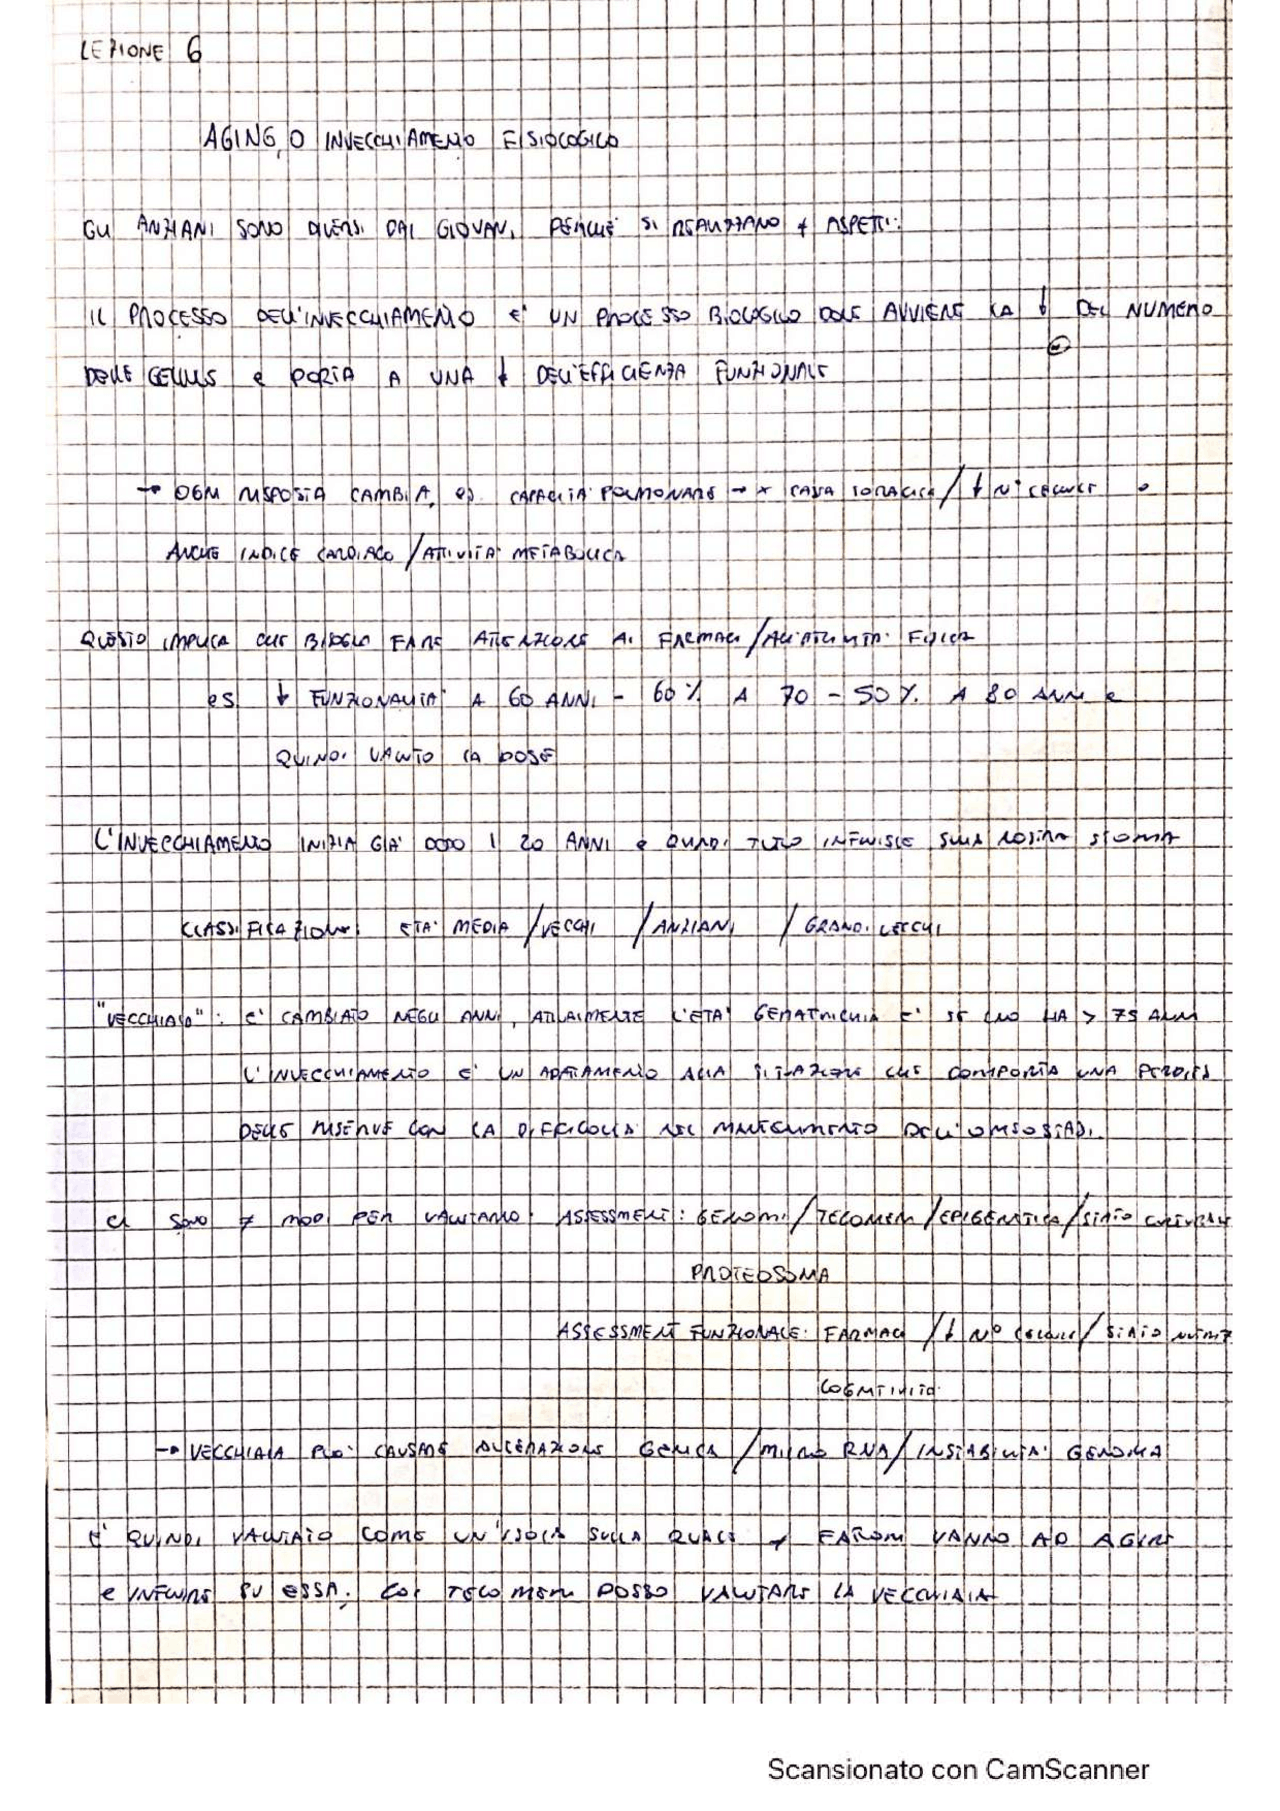 LEZIONE 6
AGING O INVECCHIAMENTO FISIOLOGICO
GLI ANZIANI SONO DIVERSI DAI GIOVANI PERCHÈ SI REALIZZANO ≠ ASPETTI:
IL PROCESSO DELL'INVECCHIAMENTO E' UN PROCESSO BIOLOGICO DOVE AVVIENE LA ↓ DEL NUMERO
DELLE CELLULE e PORTA A UNA ↓ DELL'EFFICIENZA FUNZIONALE
→ OGNI RISPOSTA CAMBIA, es. CAPACITA' POLMONARE → x CASSA TORACICA / ↓ N° CELLULE
ANCHE INDICE CARDIACO / ATTIVITA' METABOLICA
QUESTO IMPLICA CHE BISOGNA FARE ATTENZIONE AI FARMACI / ALL'ATTIVITA' FISICA
es ↓ FUNZIONALITA' A 60 ANNI - 60% A 70 - 50% A 80 ANNI e
QUINDI VALUTO LA DOSE
L'INVECCHIAMENTO INIZIA GIA' DOPO I 20 ANNI e QUINDI TUTTO INFLUISCE SULLA NOSTRA STORIA
CLASSIFICAZIONE: ETA' MEDIA / VECCHI / ANZIANI / GRANDI VECCHI
"VECCHIAIA": E' CAMBIATO NEGLI ANNI, ATTUALMENTE L'ETA' GERIATRICHIA E' SE UNO HA > 75 ANNI
L'INVECCHIAMENTO E' UN ADATTAMENTO ALLA SITUAZIONE CHE COMPORTA UNA PERDITA
DELLE RISERVE CON LA DIFFICOLTA' NEL MANTENIMENTO DELL'OMEOSTASI.
CI SONO ≠ MODI PER VALUTARLO: ASSESSMENT: GENOMI / TELOMERI / EPIGENETICA / STATO CULTURALE
PROTEOSOMA
ASSESSMENT FUNZIONALE: FARMACI / ↓ N° CELLULE / STATO NUTRIZ
COGNITIVITA'
→ VECCHIAIA PUO' CAUSARE ALTERAZIONE GENICA / MICRO RNA / INSTABILITA' GENOMICA
E' QUINDI VALUTATO COME UN'ISOLA SULLA QUALE ≠ FATTORI VANNO AD AGIRE
e INFLUIRE SU ESSA. COI TELOMERI POSSO VALUTARE LA VECCHIAIA
Scansionato con CamScanner